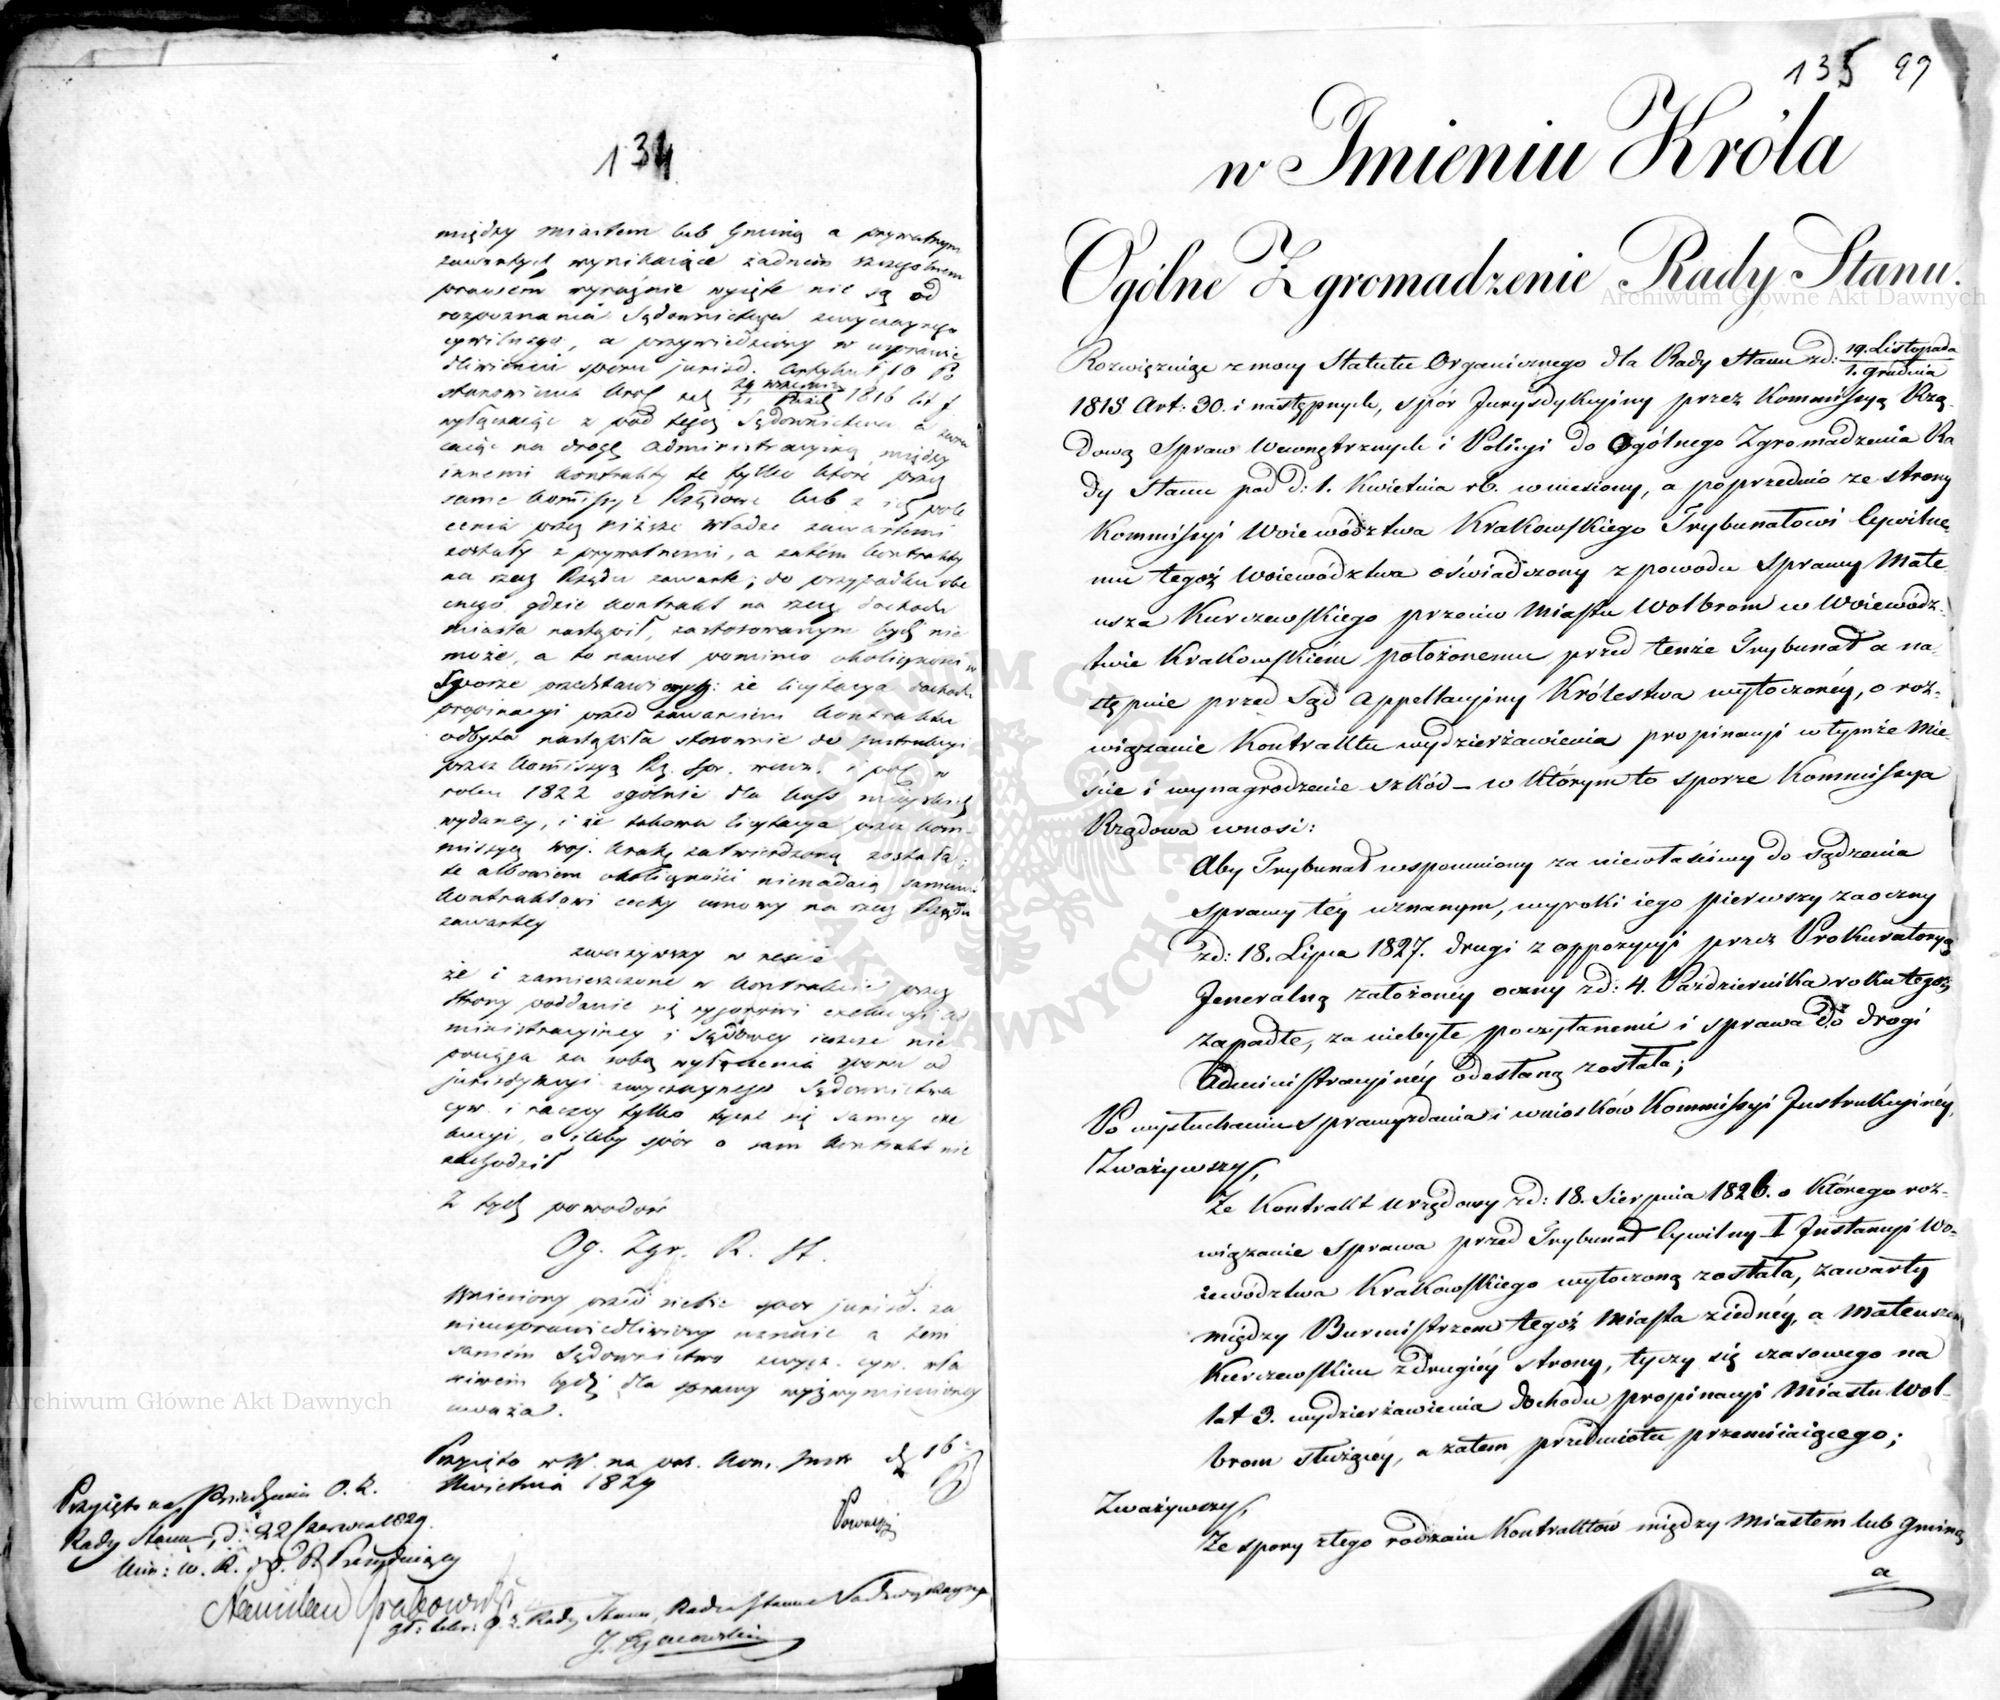 134
między miastem lub Gminą a prywatnym
zawartych wynikaiące żadnem szczególnem
prawem wyraźnie wyięte nie są od
rozpoznania Sądownictwa zwyczaynego
cywilnego, a przywiedziony w usprawie
dliwieniu sporu jurisd. Artykuł 10 Po
stanowienia Król z d. 29 września / 1. Paźdź 1816 lit f
wyłączaiąc z pod tegoż Sądownictwa a zwra
caiąc na drogę Administracyiną między
innemi kontrakty te tylko które przez
same Kommissye Rządowe lub z ich pole
cenia przez niższe władze zawartemi
zostały z prywatnemi, a zatém kontrakty
na rzecz Rządu zawarte; do przypadku obe
cnego gdzie kontrakt na rzecz dochodu
miasta nastąpił, zastosowanym bydź nie
może, a to nawet pomimo okoliczności w
Sporze przedstawionych: że licytacya dochodu
propinacyi przed zawarciem kontraktu
odbyta nastąpiła stosownie do Instrukcyi
przez Kommissyą Rz. Spr. wewn. i pol. w
roku 1822 ogólnie dla kass mieyskich
wydaney, i że takowa licytacya przez Kom-
missyą woj. krak. zatwierdzoną została;
te albowiem okoliczności nienadaią samemu
kontraktowi cechy umowy na rzecz Rządu
zawartey
zważywszy w reście
że i zamieszczone w kontrakcie przez
strony poddanie się rygorowi exekucyi ad
ministracyiney i Sądowey ieszcze nie
pociąga za sobą wyłączenia sporu od
jurisdykcyi zwyczaynego Sądownictwa
cyw. i raczey tylko tycze się samey exe
kucyi, o ileby spór o sam kontrakt nie
zachodził
Z tych powodów
Og. Zgr. R. St.
Wniesiony przed siebie spór jurisd. za
nieusprawiedliwiony uznaie a tem
samém Sądownictwo zwycz. cyw. wła
sciwém bydź dla sprawy wyżwymienioney
uważa.
Przyięto w W. na pos. Kom. Instr d. 16
Kwietnia 1829
Przyięto na Posiedzeniu O. Z.
Rady Stanu, d. 22 Czerwca 1829.
Min: W. R. i O. P. Prezyduiący
Stanisław Grabowski
Rady Stanu, Radca Stanu Nadzwyczayny
135 99
w Imieniu Króla
Ogólne Zgromadzenie Rady Stanu.
Rozwięzuiąc z mocy Statutu Organicznego dla Rady Stanu zd: 19. Listopada / 1. Grudnia
1815 Art: 30. i następnych, spór Jurysdykcyiny przez Kommissyą Rzą-
dową Spraw Wewnętrznych i Policyi do Ogólnego Zgromadzenia Ra
dy Stanu pod d: 1. Kwietnia rb. wniesiony, a poprzednio ze strony
Kommissyi Woiewództwa Krakowskiego Trybunałowi Cywilne-
mu tegoż Woiewództwa oświadczony z powodu Sprawy Mate-
usza Kurczewskiego przeciw Miastu Wolbrom w Woiewódz-
twie Krakowskiém położonemu przed tenże Trybunał a na-
stępnie przed Sąd Appellacyiny Królestwa wytoczonéy, o roz-
wiązanie Kontraktu wydzierżawienia propinacyi w tymże Mie-
ście i wynagrodzenie szkód – w którym to sporze Kommissya
Rządowa wnosi:
Aby Trybunał wspomniony za niewłaściwy do sądzenia
sprawy téy uznanym, wyroki iego pierwszy zaoczny
zd: 18. Lipca 1827. drugi z oppozycyi przez Prokuratoryą
Jeneralną założonéy oczny zd: 4. Października roku tegoż
zapadłe, za niebyłe poczytanemi i sprawa do drogi
Administracyinéy odesłaną została;
Po wysłuchaniu sprawozdania i wniosków Kommissyi Instrukcyinéy,
Zważywszy,
Że Kontrakt urzędowy zd: 18. Sierpnia 1826. o którego roz-
wiązanie sprawa przed Trybunał Cywilny I Instancyi Wo-
iewództwa Krakowskiego wytoczoną została, zawarty
między Burmistrzem tegoż Miasta z iednéy, a Mateuszem
Kurczewskim z drugiéy strony, tyczy się czasowego na
lat 3. wydzierżawienia dochodu propinacyi Miastu Wol-
brom służącéy, a zatem przedmiotu przemiiaiącego;
Zważywszy,
Że spory z tego rodzaiu Kontraktów między Miastem lub Gminą
a
Archiwum Główne Akt Dawnych
Archiwum Główne Akt Dawnych
ARCHIWUM GŁÓWNE AKT DAWNYCH